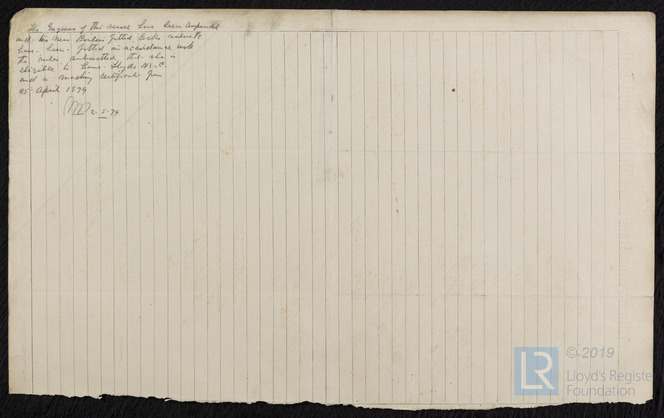 The Engines of this vessel have been compounded
and two New Boilers fitted
have been fitted in accordance with
the rules submitted, that she is
eligible to have Lloyds M.C.
and is meeting certificate from
25 April 1879
2-5-79
LR
©2019
Lloyd's Register
Foundation